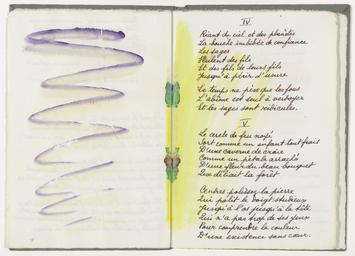 IV
Riant du ciel et des planètes
La bouche imbibée de confiance
Les sages
Veulent des fils
Et des fils de leurs fils
Jusqu'à périr d'usure
Le temps ne pèse que les fous
L'abîme est seul à verdoyer
Et les sages sont ridicules.
V
Le cercle de feu
Sort comme un enfant tout frais
D'une caverne de craie
Comme un pétale arraché
D'une fleur du beau bouquet
Que déliait la forêt
polissez la pierre
Qui polit le doigt studieux
Jusqu'à l'os jusqu'à la
Qui n'a pas trop de ses yeux
Pour comprendre la couleur
D'une existence sans cœur.